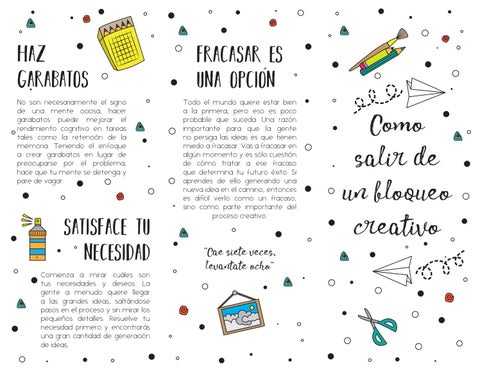 HAZ
GARABATOS
No son necesariamente el signo
de una mente ociosa, hacer
garabatos puede mejorar el
rendimiento cognitivo en tareas
tales como la retención de la
memoria. Teniendo el enfoque
a crear garabatos en lugar de
preocuparse por el problema,
hace que tu mente se detenga y
pare de vagar.
SATISFACE TU
NECESIDAD
Comienza a mirar cuáles son
tus necesidades y deseos. La
gente a menudo quiere llegar
a las grandes ideas, saltándose
pasos en el proceso y sin mirar los
pequeños detalles. Resuelve tu
necesidad primero y encontrarás
una gran cantidad de generación
de ideas.
FRACASAR ES
UNA OPCIÓN
Todo el mundo quiere estar bien
a la primera, pero eso es poco
probable que suceda. Una razón
importante para que la gente
no persiga las ideas es que tienen
miedo a fracasar. Vas a fracasar en
algún momento y es sólo cuestión
de cómo tratar a ese fracaso
que determina tu futuro éxito. Si
aprendes de ello generando una
nueva idea en el camino, entonces
es difícil verlo como un fracaso,
sino como parte importante del
proceso creativo
"Cae siete veces,
levantate ocho"
Como
salir de
un bloqueo
creativo